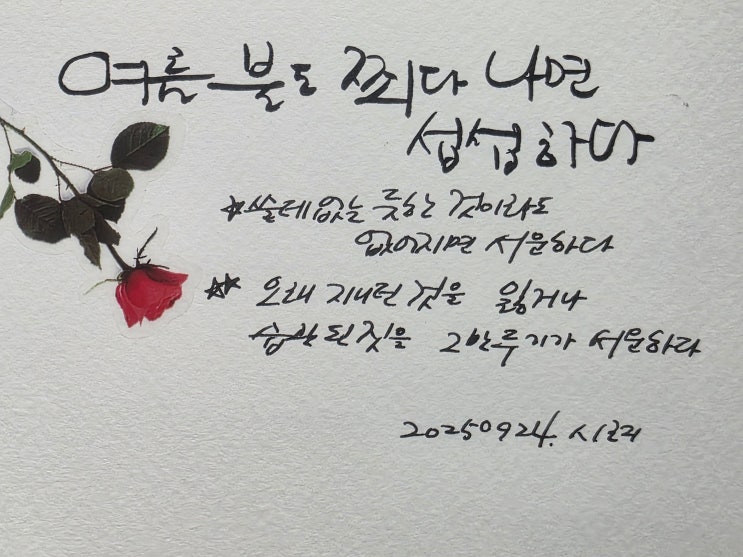 여름 불도 쬐다 나면
섭섭하다
☆쓸데없는 듯한 것이라도
없어지면 서운하다
☆☆ 오래 지내던 것을 잃거나
습관된 짓을 그만두기가 서운하다
20250924. 시크리